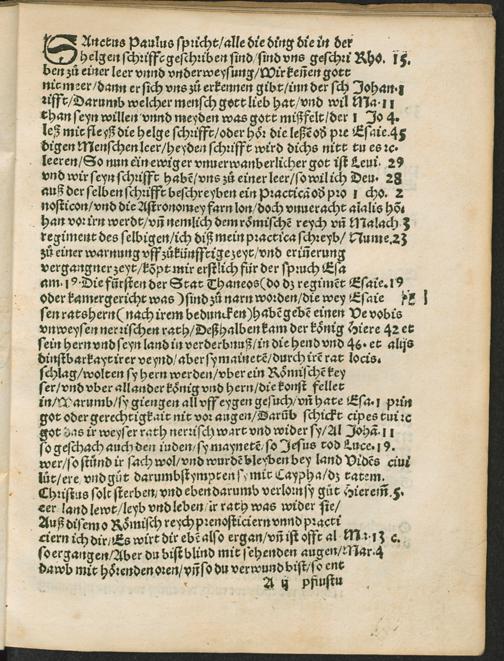 SAnctus Paulus spricht/alle die ding die in der
helgen schrifft geschriben sind/sind vns geschri Rho. 15.
ben zů einer leer vnnd vnderweysung/Wir keñen gott
nit meer/dann er sich vns zů erkennen gibt/inn der sch Johan. 1
rifft/Darumb welcher mensch gott lieb hat/vnd wil Ma. 11
than seyn willen vnnd meyden was gott mißfelt/der 1 Jo 4.
leß mit fleyß die helge schrifft/oder hör die leßẽ oď pre Esaie. 45
digen Menschen leer/heyden schrifft wird dichs nitt tu es ⁊c.
leeren/So nun ein ewiger vnuerwanberlicher got ist Leui. 29
vnd wir seyn schrifft habẽ/vns zů einer leer/so wil ich Deu. 28
auß der selben schrifft beschreyben ein Practica oď pro 1 cho. 2
nosticon/vnd die Astronomey farn lon/doch vnueracht aialis hõ.
han vor irn werdt/vñ nemlich dem römischẽ reych vñ Malach 3
regiment des selbigen/ich diß mein practica schreyb/ Nume. 23
zů einer warnung vff zůkünfftige zeyt/vnd erinerung
vergangner zeyt/köpt mir erstlich für der spruch Esa
am. 19. Die fürsten der Stat Thaneos (do dz regimẽt Esaie. 19
oder kamergericht was) sind zů narn worden/die wey Esaie
sen ratshern (nach irem beduncken) habẽ gebẽ einen Ve vobis
vnweysen nerrischen rath/Deßhalben kam der könig Hiere 42 et
sein hern vnd seyn land in verderbnuß/in die hend vnd 46. et alijs
dinstbarkayt irer veynd/aber sy mainetẽ/durch irẽ rat locis.
schlag/wolten sy hern werden/vber ein Römischẽ key
ser/vnd vber allander könig vnd hern/die konst fellet
in/Warumb/sy giengen all vff eygen gesuch/vñ hate Esa. 1 prin
got oder gerechtigkait nit vor augen/Darũb schickt cipes tui ⁊c
got das ir weyser rath nerisch wart vnd wider sy/Al Johã. 11
so geschach auch den iuden/sy maynetẽ/so Jesus tod Luce. 19.
wer/so stünd ir sach wol/vnd wurdẽ bleyben bey land Vidẽs ciui
lüt/ere/vnd güt darumb stympten sy mit Caypha/dz tatem.
Christus solt sterben/vnd eben darumb verlorn sy güt Hierem. 5.
eer land lewt/leyb vnd leben/ir rath was wider sie/
Auß disem o Römisch reych prenosticiern vnnd practi
ciern ich dir/Es wirt dir ebẽ also ergan/vñ ist offt al Ma. 13 c.
so ergangen/Aber du bist blind mit sehenden augen/Mar. 4
dawb mit hörenden oren/vñ so du verwund bist/so ent
A ij pfiustu